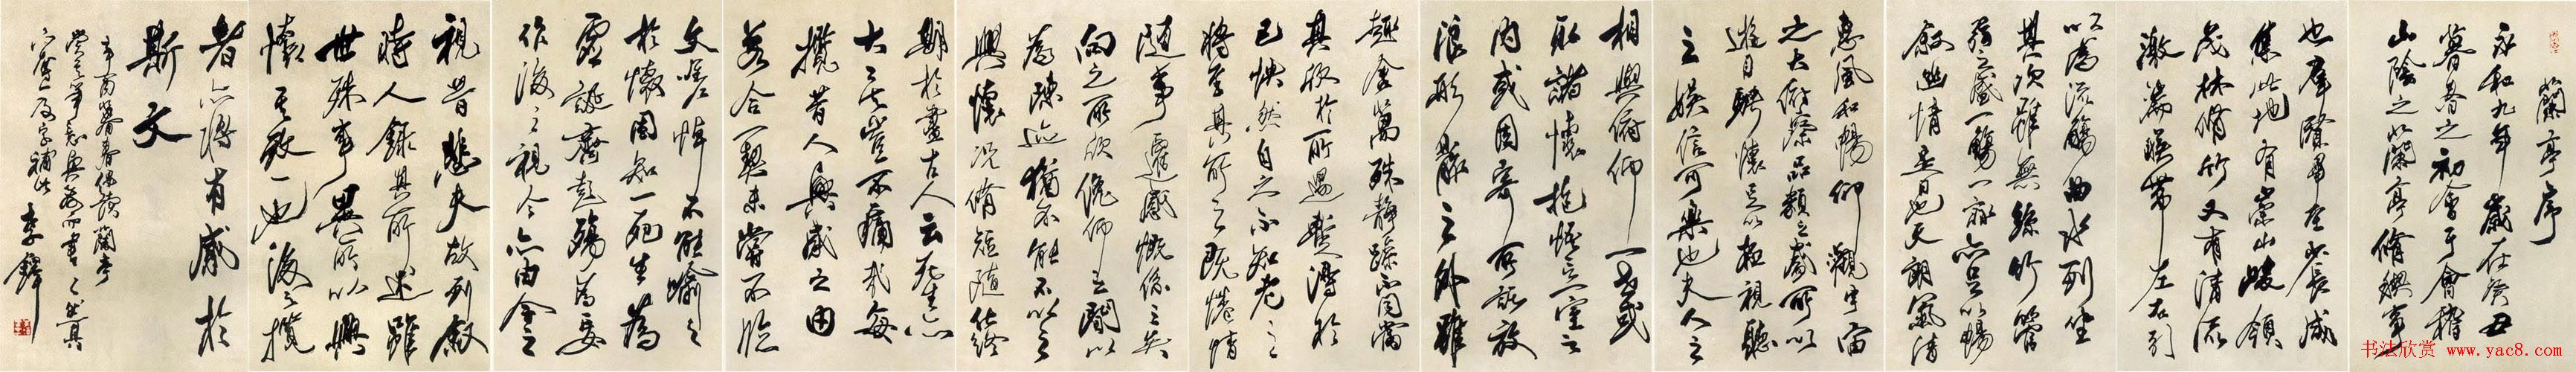 蘭亭序
永和九年歲在癸丑
暮春之初會于會稽
山陰之蘭亭脩禊事
也群賢畢至少長咸
集此地有崇山峻領
茂林脩竹又有清流
激湍暎帶左右引
以為流觴曲水列坐
其次雖無絲竹管
弦之盛一觴一詠亦足以暢
敘幽情是日也天朗氣清
惠風和暢仰觀宇宙
之大俯察品類之盛所以
遊目騁懷足以極視聽
之娛信可樂也夫人之
相與俯仰一世或
取諸懷抱悟言一室之
內或因寄所託放
浪形骸之外雖
趣舍萬殊靜躁不同當
其欣於所遇暫得於
己快然自足不知老之
將至及其所之既惓情
隨事遷感慨係之矣
向之所欣俛仰之間以
為陳迹猶不能不以之
興懷況脩短隨化終
期於盡古人云死生亦
大矣豈不痛哉每
攬昔人興感之由
若合一契未嘗不臨
文嗟悼不能喻之
於懷固知一死生為
虛誕齊彭殤為妄
作後之視今亦由今之
視昔悲夫故列敘
時人錄其所述雖
世殊事異所以興
懷其致一也後之攬
者亦將有感於
斯文
辛酉暮春偶讀蘭亭
李鐸
书法欣赏 www.yac8.com